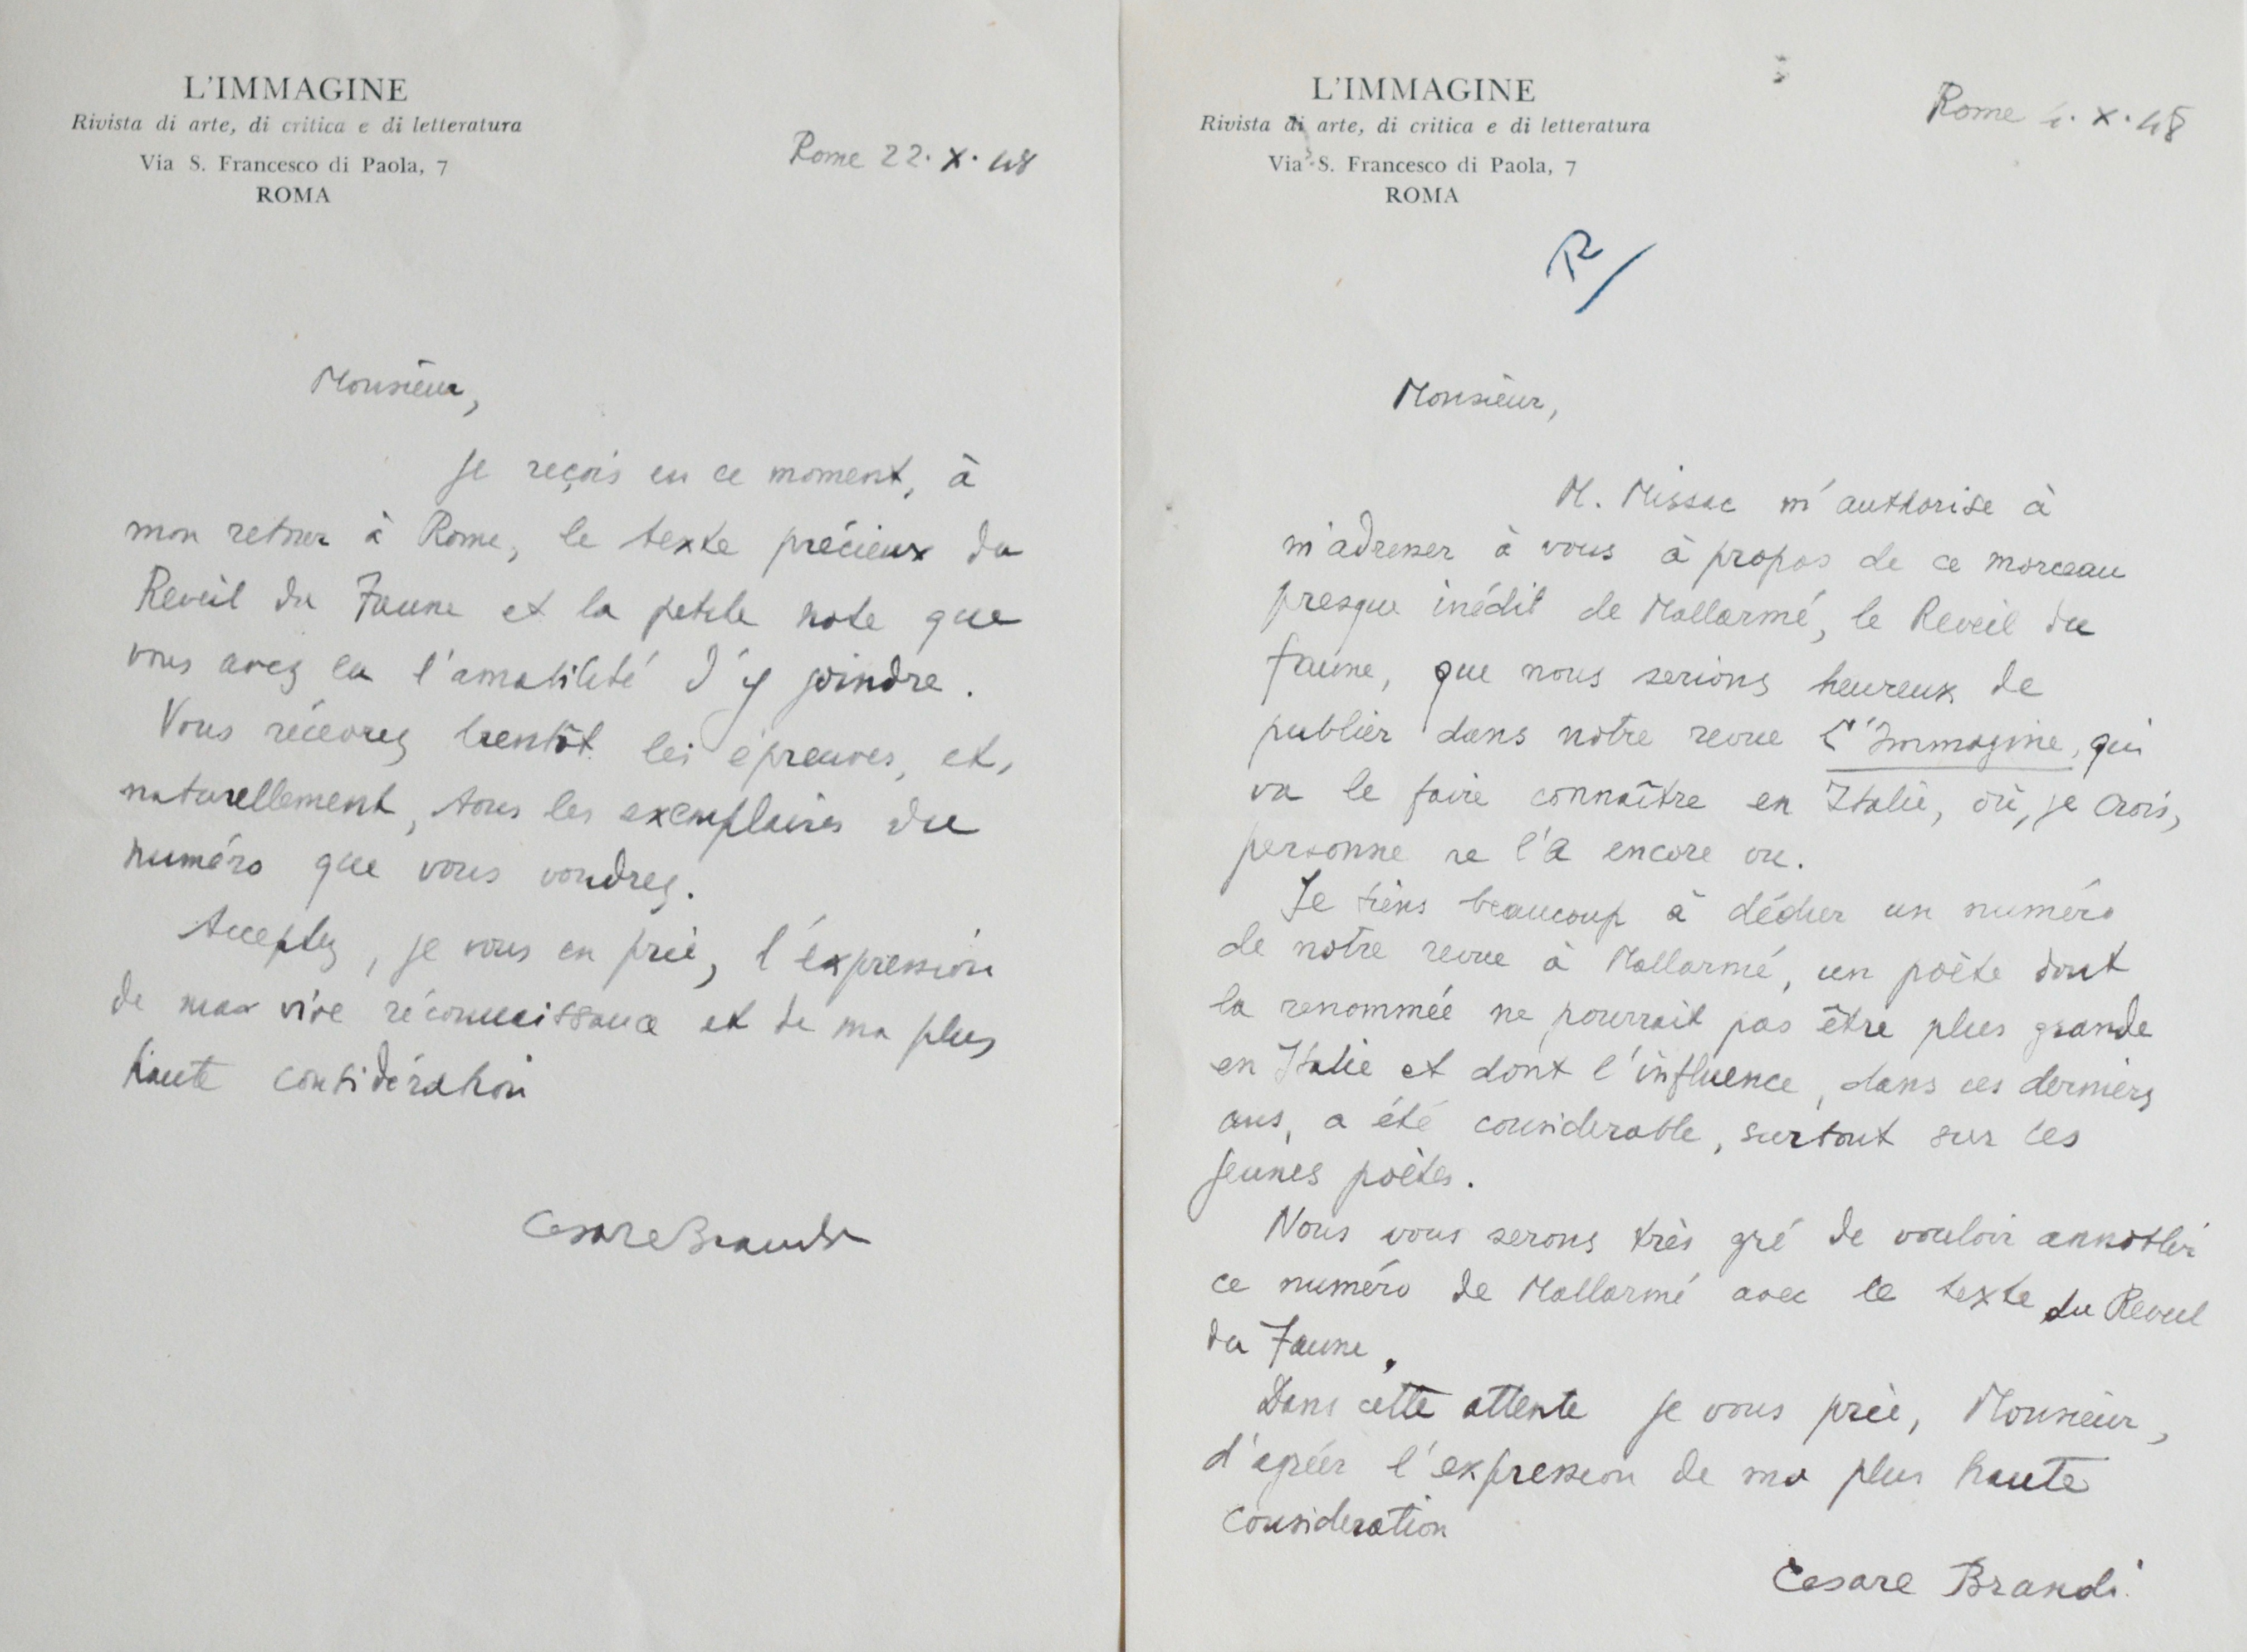 L'IMMAGINE
Rivista di arte, di critica e di letteratura
Via S. Francesco di Paola, 7
ROMA
Rome 22. X. 48
Monsieur,
Je reçois en ce moment, à
mon retour à Rome, le texte précieux du
Reveil du Faune et la petite note que
vous avez eu l'amabilité d'y joindre.
Vous récevrez bientôt les épreuves, et,
naturellement, tous les exemplaires du
numéro que vous voudrez.
Acceptez, je vous en prie, l'éxpression
de ma vive réconnaissance et de ma plus
haute considération
Cesare Brandi
L'IMMAGINE
Rivista di arte, di critica e di letteratura
Via S. Francesco di Paola, 7
ROMA
Rome X. 48
R/
Monsieur,
M. Missac m'authorise à
m'adresser à vous à propos de ce morceau
presque inédit de Mallarmé, le Reveil du
faune, que nous serions heureux de
publier dans notre revue L'Immagine, qui
va le faire connaître en Italie, où, je crois,
personne ne l'a encore vu.
Je tiens beaucoup à dédier un numéro
de notre revue à Mallarmé, un poète dont
la renommée ne pourrait pas être plus grande
en Italie et dont l'influence, dans ces derniers
ans, a été considerable, surtout sur les
jeunes poètes.
Nous vous serons très gré de vouloir annoblir
ce numéro de Mallarmé avec le texte du Reveil
du Faune.
Dans cette attente je vous prie, Monsieur,
d'agréer l'expression de ma plus haute
consideration
Cesare Brandi